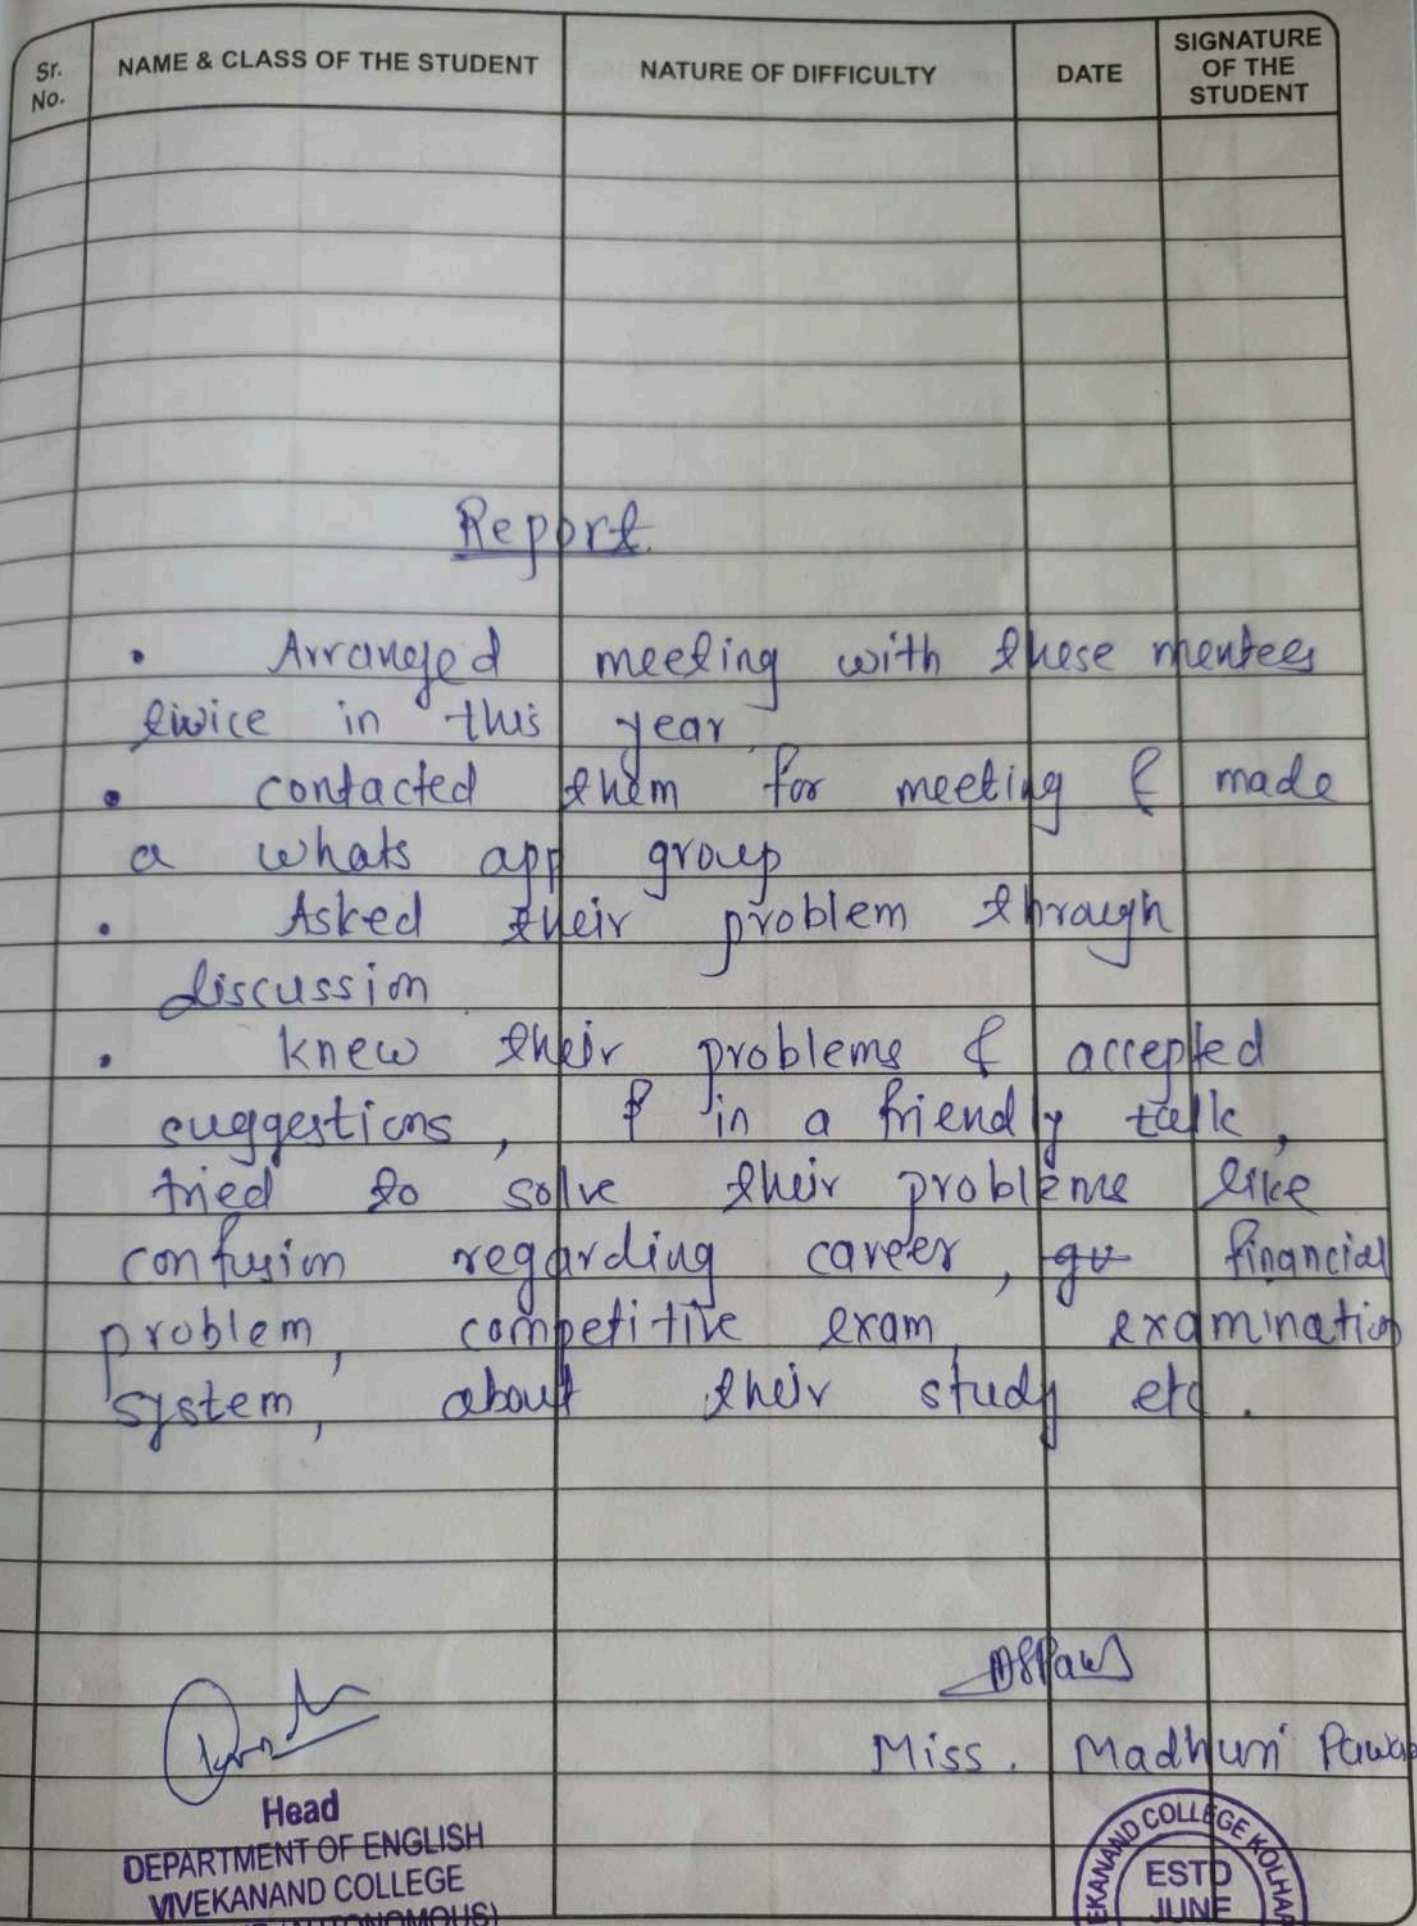 Sr. No.
NAME & CLASS OF THE STUDENT
NATURE OF DIFFICULTY
DATE
SIGNATURE OF THE STUDENT
Report.
• Arranged meeting with these mentees
twice in this year
• contacted them for meeting & made
a whats app group
• Asked their problem through
discussion
• knew their problems & accepted
suggestions, & in a friendly talk,
tried to solve their problems like
confusion regarding career, financial
problem, competitive exam, examination
system, about their study etc.
Miss. Madhuri Pawar
Head
DEPARTMENT OF ENGLISH
VIVEKANAND COLLEGE
(AUTONOMOUS)
EKANAND COLLEGE KOLHAP
ESTD
JUNE